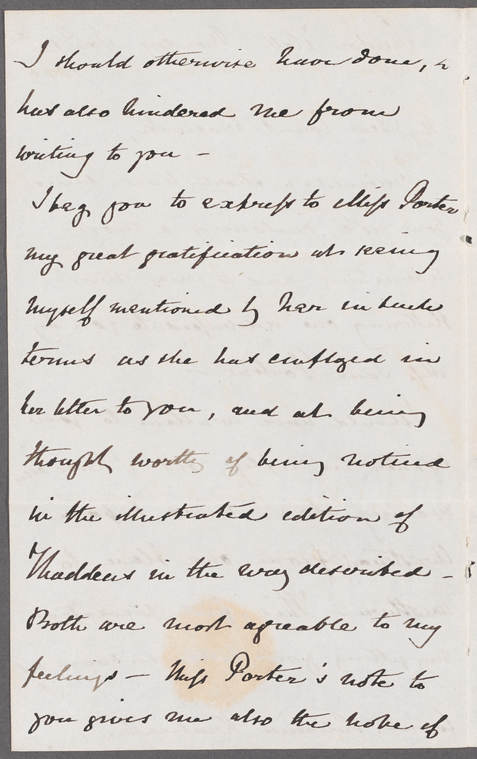 I should otherwise have done, &
has also hindered me from
writing to you –
I beg you to express to Miss Porter
my great gratification at seeing
myself mentioned by her in such
terms as she has employed in
her letter to you, and at being
thought worthy of being noticed
in the illustrated edition of
Thaddeus in the way described –
Both are most agreable to my
feelings – Miss Porter's note to
you gives me also the hope of